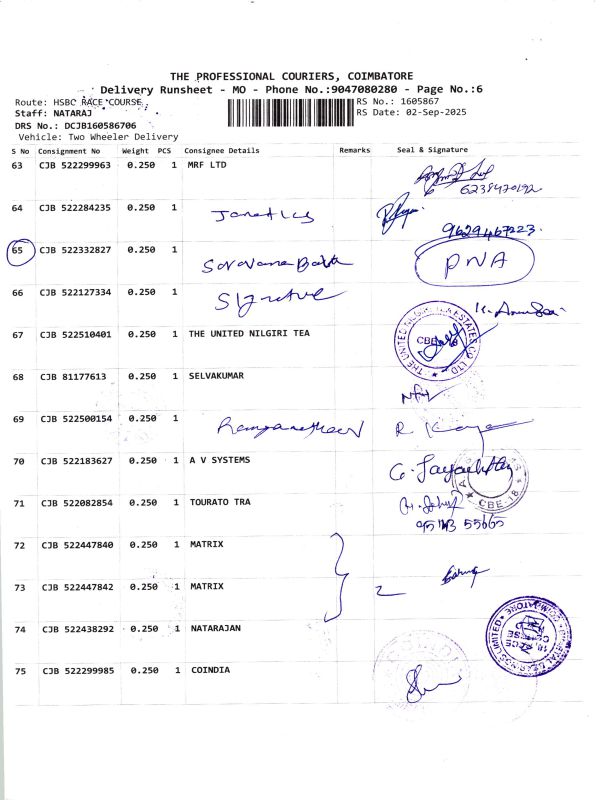 THE PROFESSIONAL COURIERS, COIMBATORE
Delivery Runsheet - MO - Phone No.:9047080280 - Page No.:6
Route: HSBC RACE COURSE
RS No.: 1605867
Staff: NATARAJ
RS Date: 02-Sep-2025
DRS No.: DCJB160586706
Vehicle: Two Wheeler Delivery
S No Consignment No Weight PCS Consignee Details Remarks Seal & Signature
63 CJB 522299963 0.250 1 MRF LTD
64 CJB 522284235 0.250 1
9629467223
65 CJB 522332827 0.250 1 PNA
66 CJB 522127334 0.250 1 Signature
67 CJB 522510401 0.250 1 THE UNITED NILGIRI TEA
THE UNITED NILGIRI TEA ESTATES CO LTD CBE
68 CJB 81177613 0.250 1 SELVAKUMAR
69 CJB 522500154 0.250 1
70 CJB 522183627 0.250 1 A V SYSTEMS
CBE-18
71 CJB 522082854 0.250 1 TOURATO TRA
72 CJB 522447840 0.250 1 MATRIX
73 CJB 522447842 0.250 1 MATRIX
74 CJB 522438292 0.250 1 NATARAJAN
75 CJB 522299985 0.250 1 COINDIA